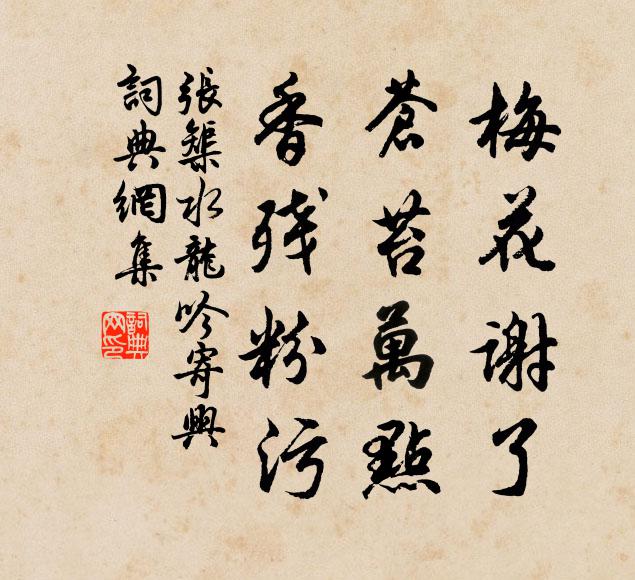 梅花謝了
蒼苔萬點
香殘粉污
張榘水龍吟寄興
詞典網集
詞典
网印